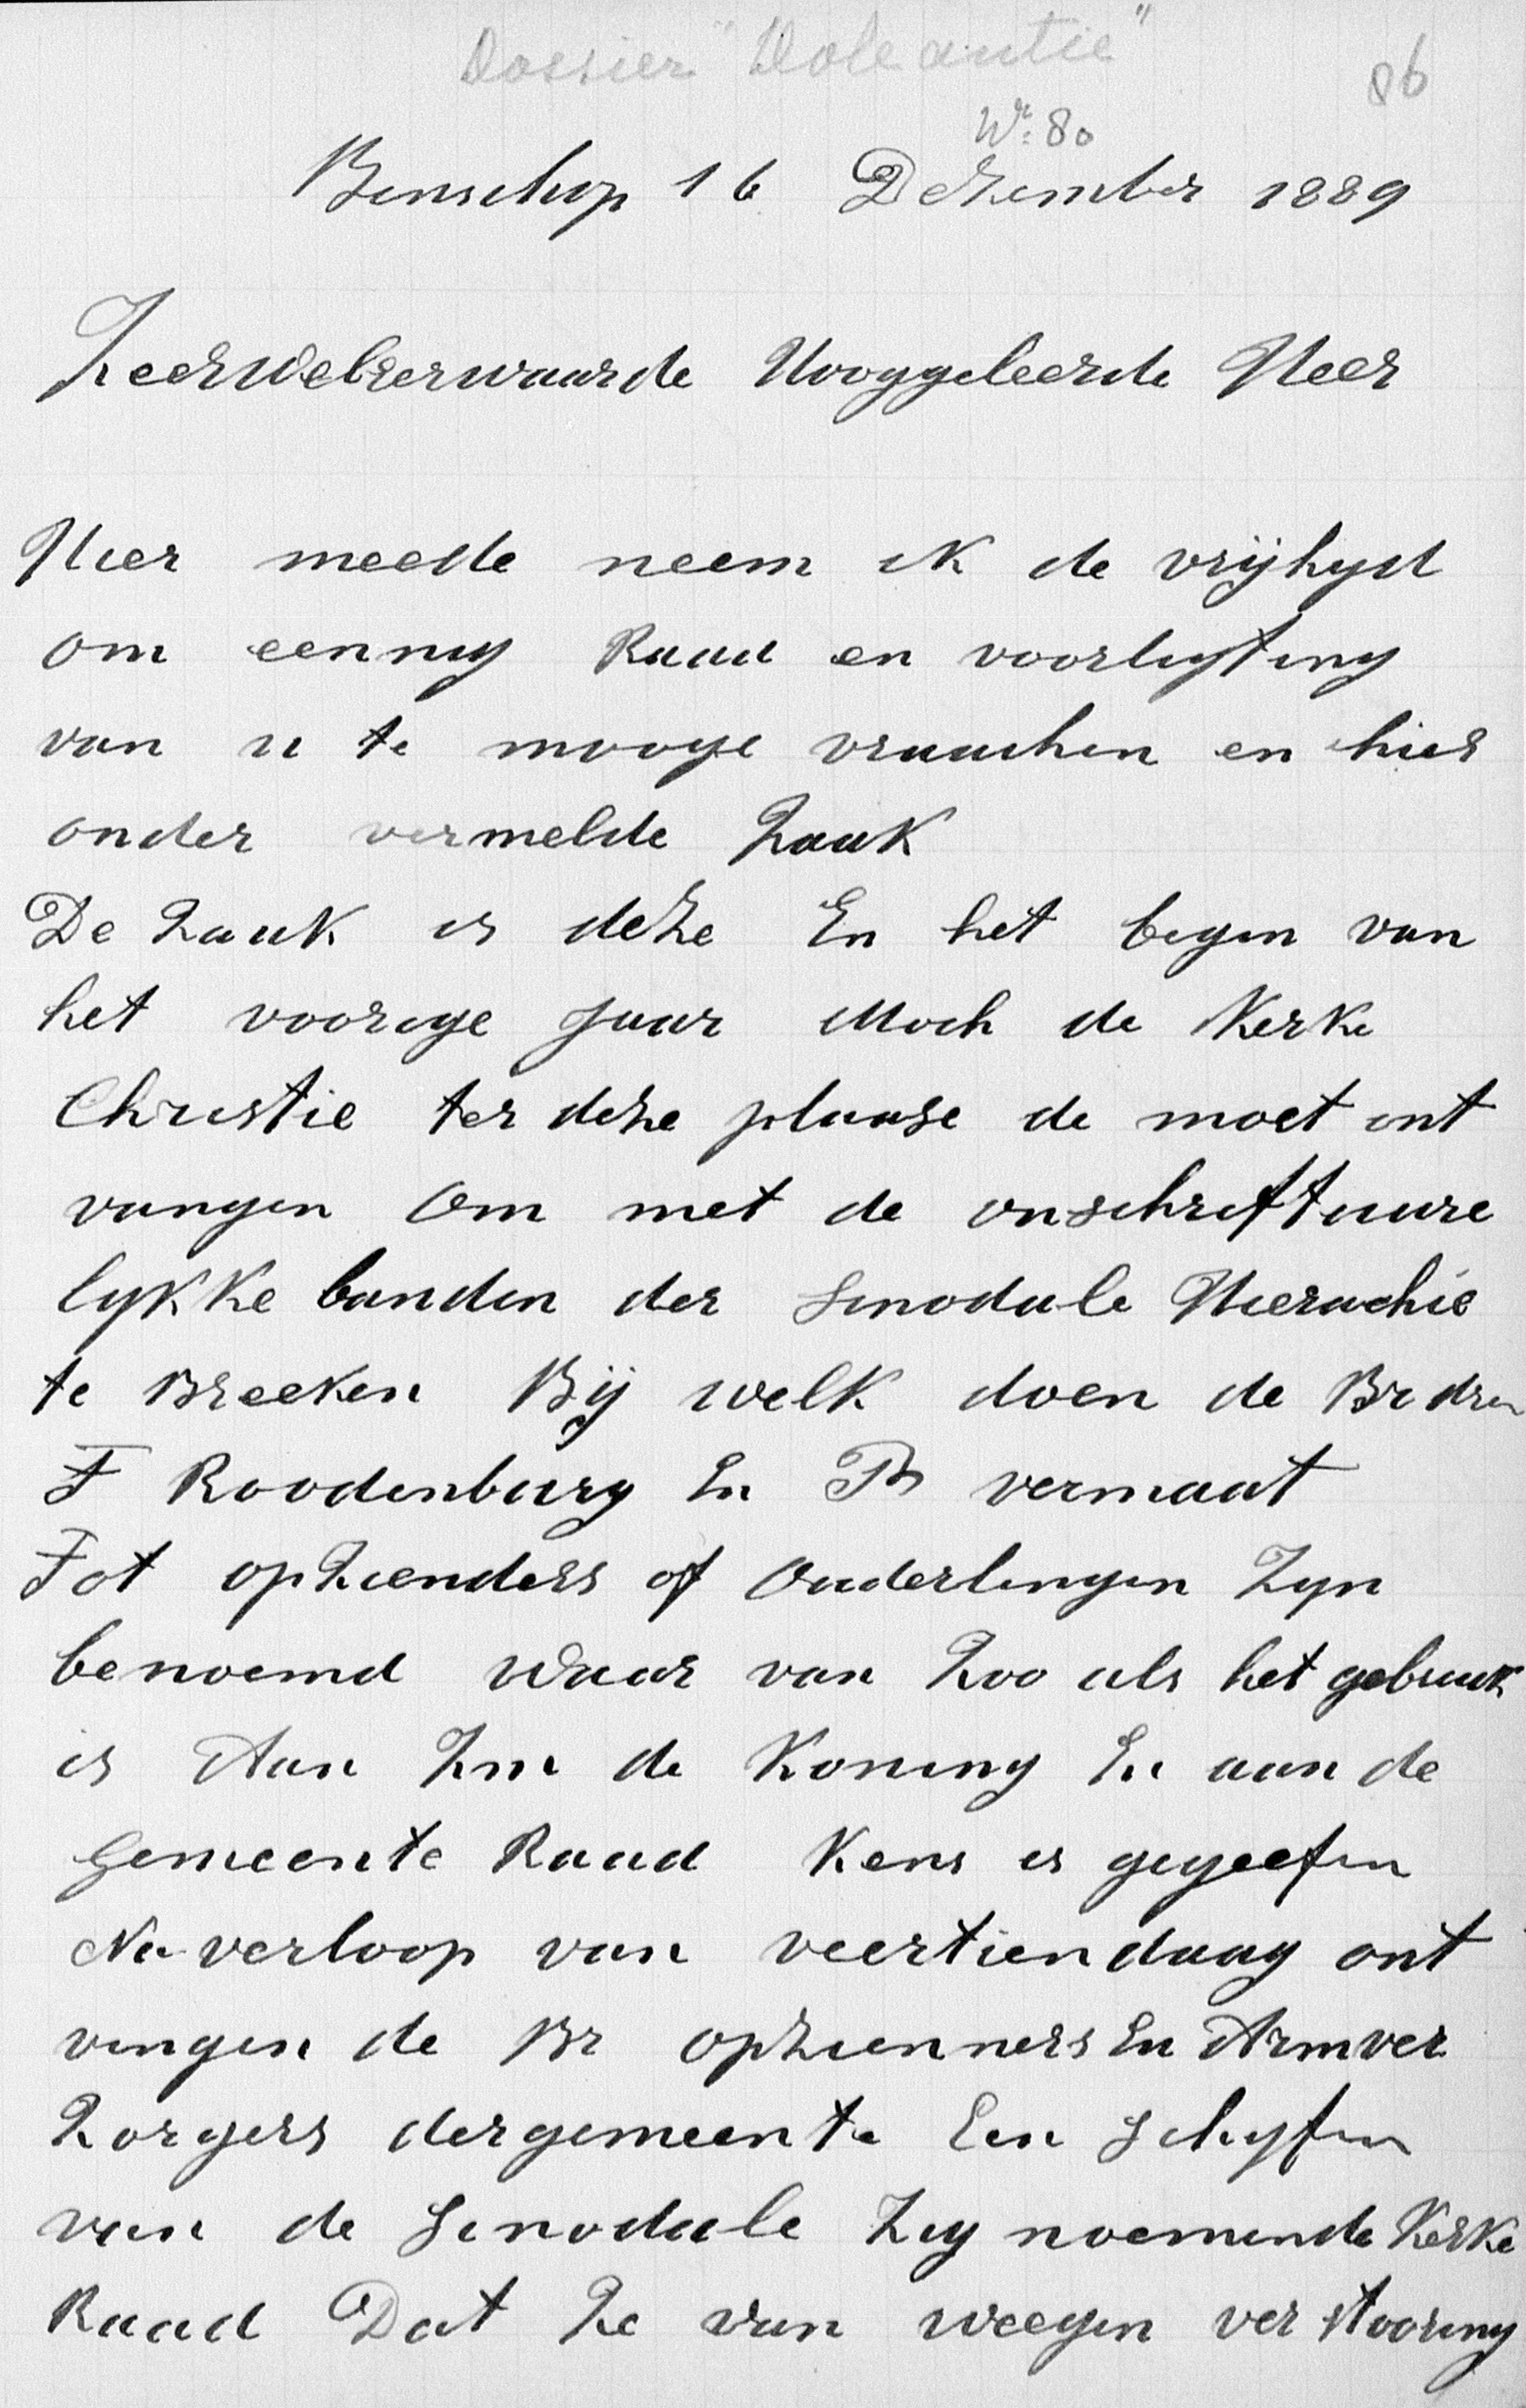 Dossier "Doleantie"
86
Nr: 80
Benschop 16 Dezember 1889
Zeerweleerwaarde Hooggeleerde Heer
Hier meede neem ik de vrijhyd
om eennig Raad en voorligting
van u te mooge vraachen en hier
onder vermelde Zaak
De Zaak is deze En het begin van
het voorige Jaar Moch de Kerke
Christie ter deze plaase de moet ont
vangen Om met de onschriftuure
lykke banden der Sinodale Hierachie
te Breeken Bij welk doen de Brdrn
F Roodenburg En P vermaat
Tot opZienders of Ouderlingen Zyn
benoemd Waar van Zoo als het gebruik
is Aan Zm de Koning En aan de
Gemeente Raad Kens is gegeefen
Na verloop van veertiendaag ont
vingen de Br opZienners En Armver
Zorgers dergemeente Een Schyfen
van de Sinodale Zig noemende Kerke
Raad Dat Ze van weegen verstooring